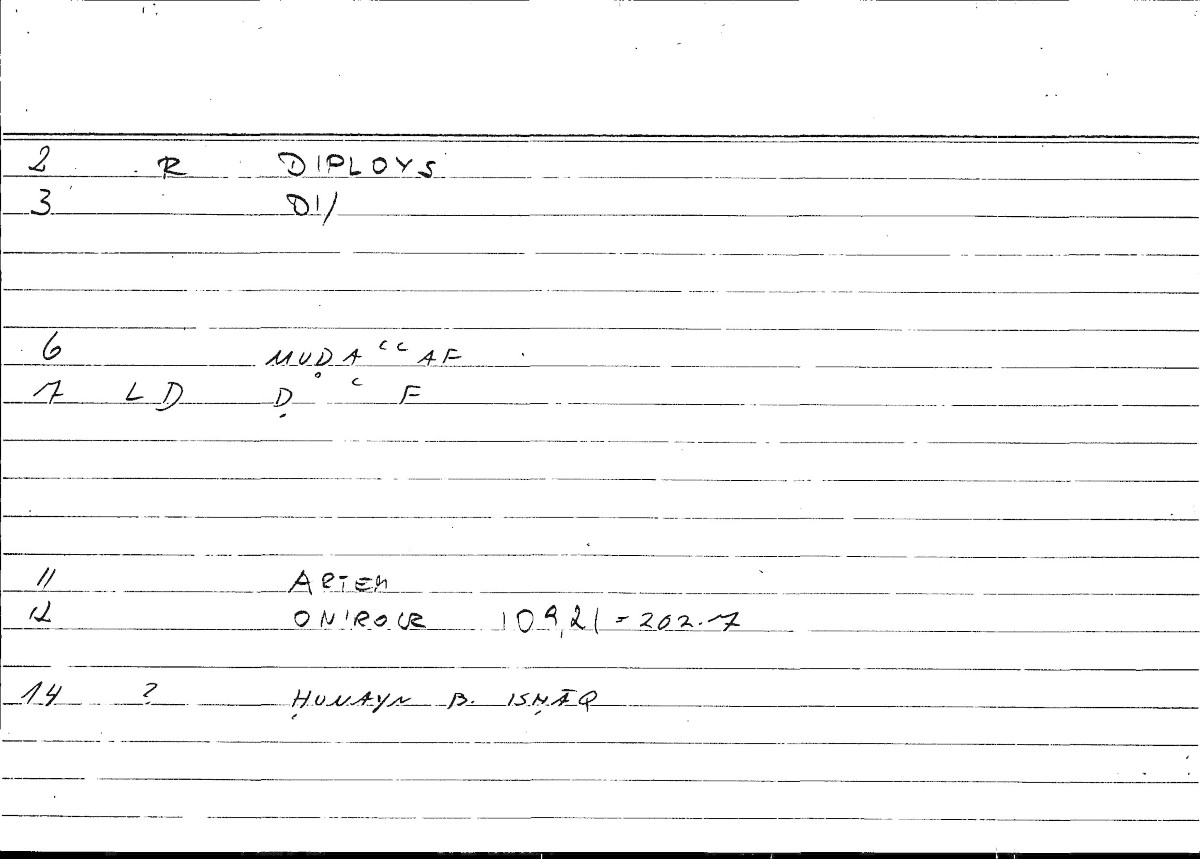 2 R DIPLOYS
3 DI/
6 MUḌAʿʿAF
7 LD Ḍ ʿ F
11 ARTEM
12 ONIROCR 109,21 = 202.7
14 ? ḤUNAYN B. ISḤĀQ